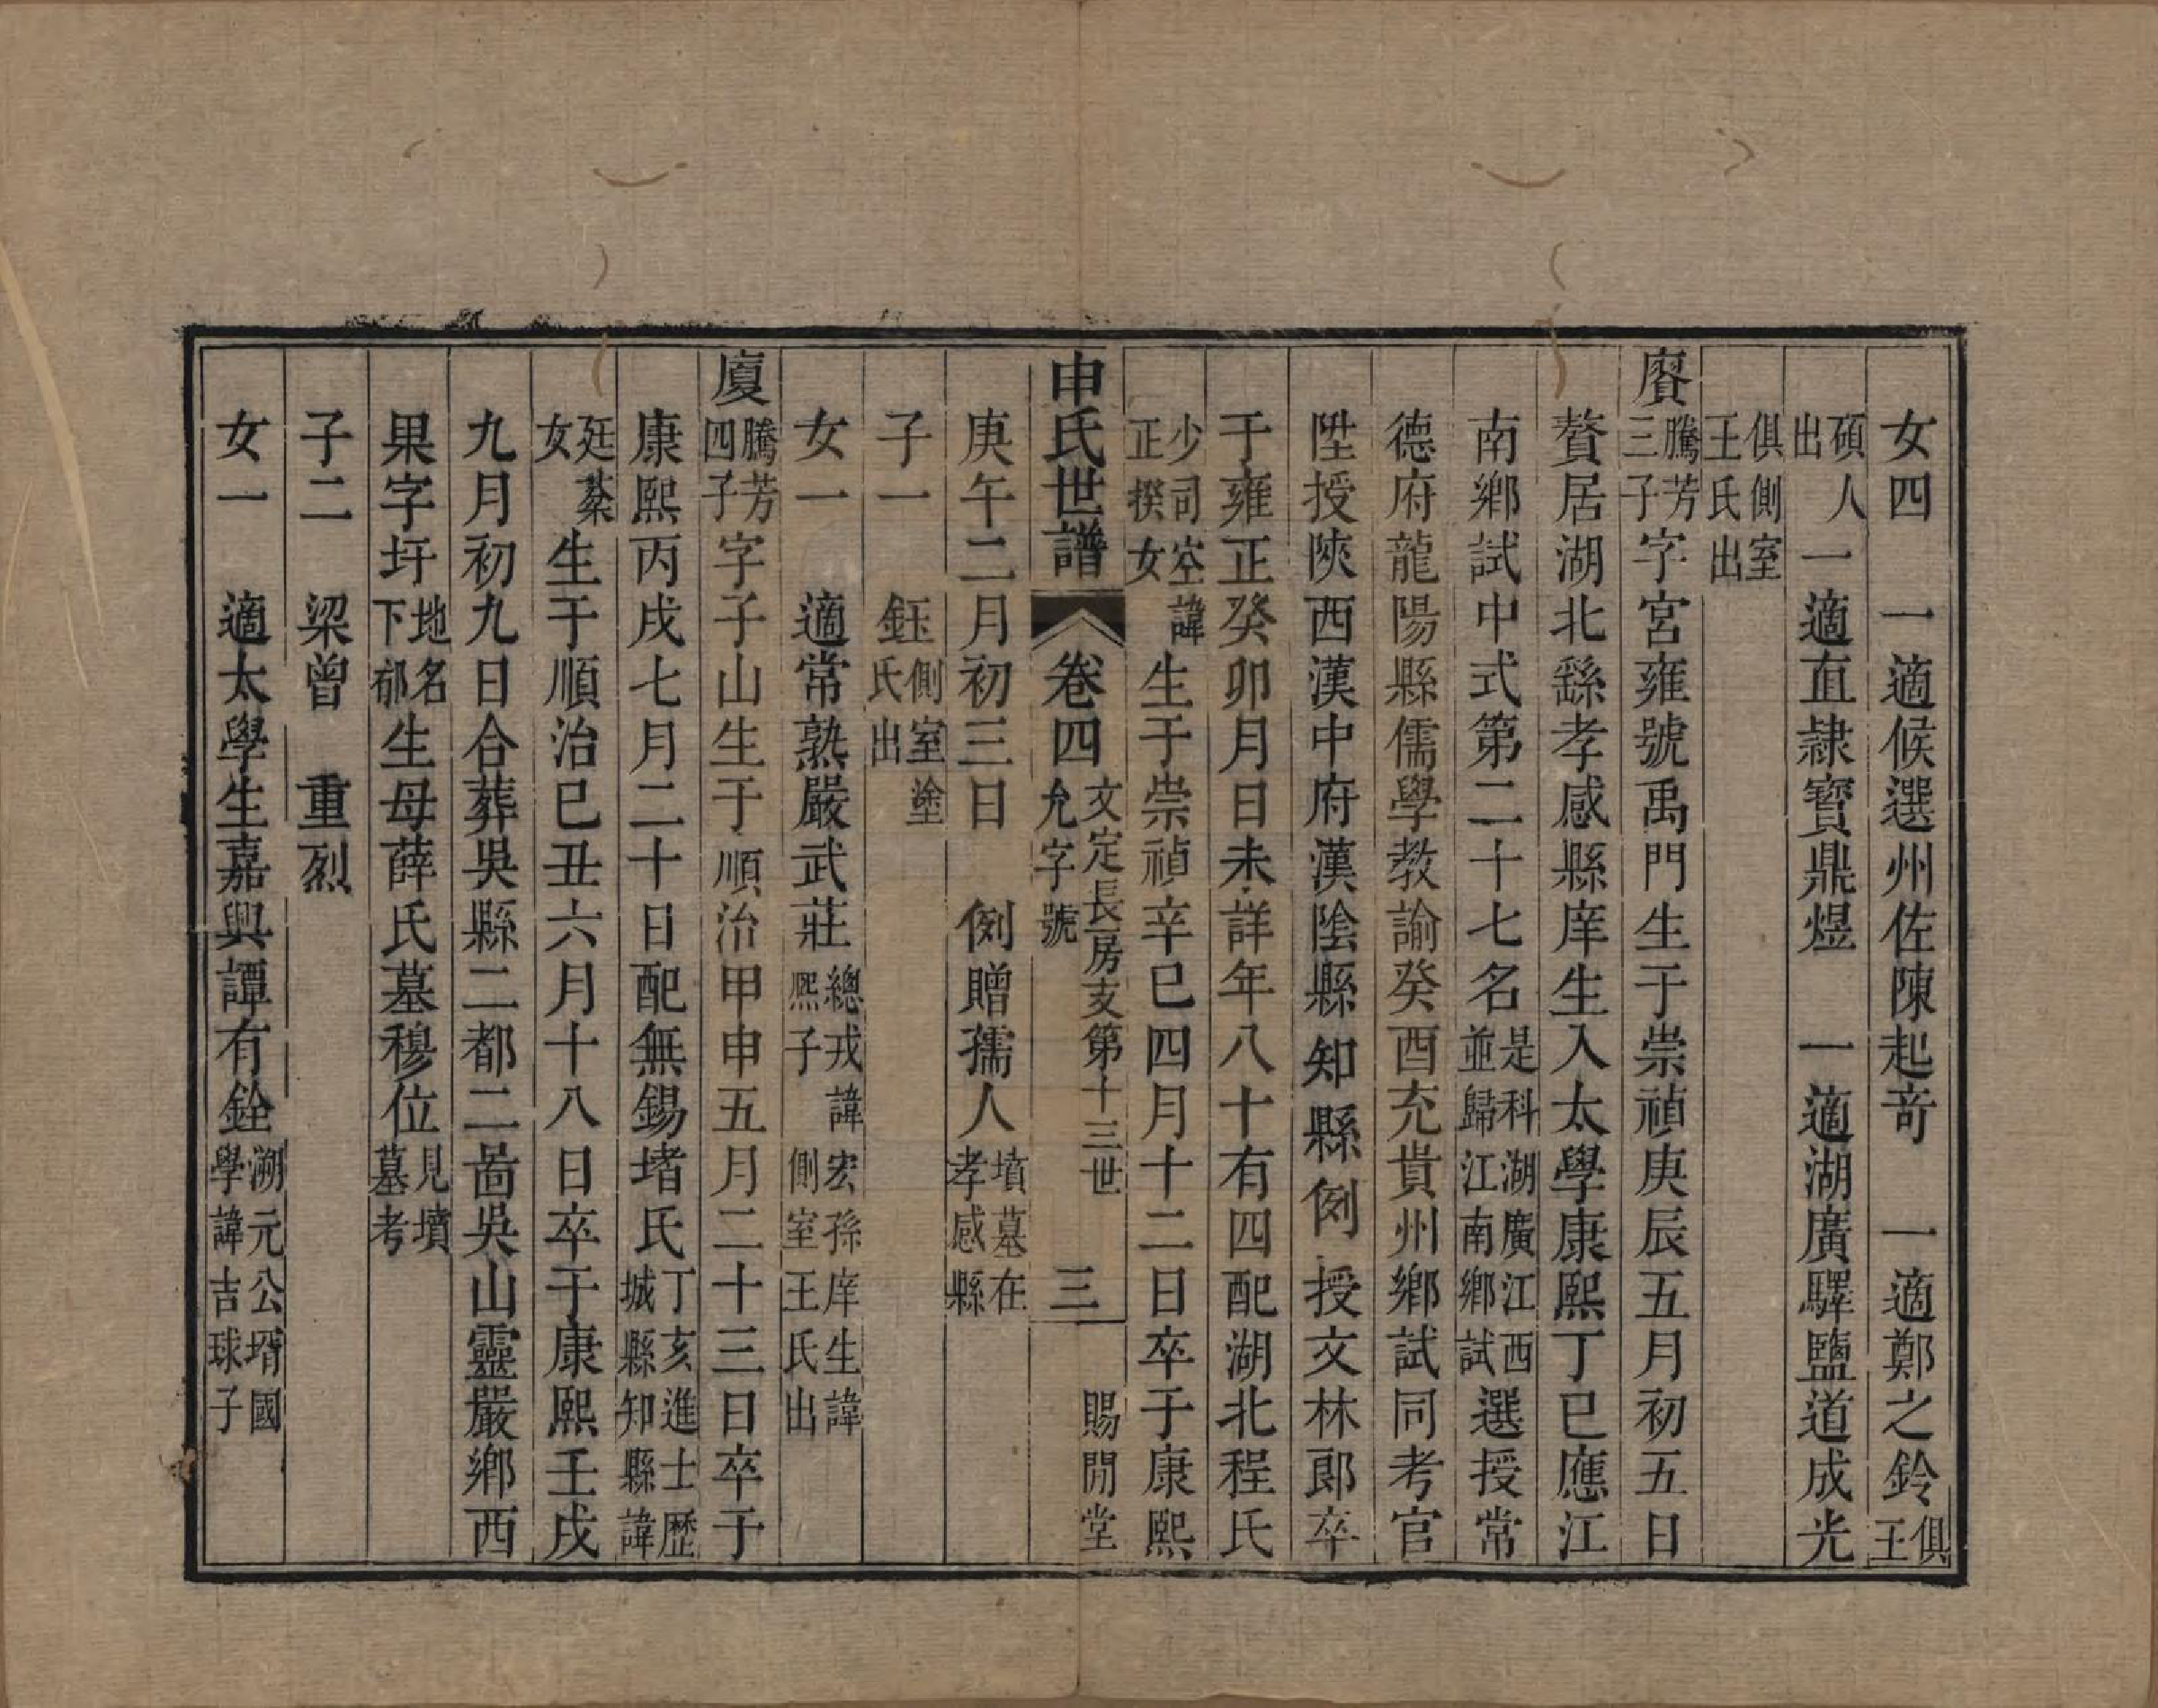 女四　一適候選州佐陳起竒　一適鄭之鈴俱王
碩人出一適直隸寶鼎煜　一適湖廣驛鹽道成光
俱側室王氏出
賡騰芳三子字宮雍號禹門生于崇禎庚辰五月初五日
贅居湖北繇孝感縣庠生入太學康熙丁巳應江
南鄉試中式第二十七名是科湖廣江西並歸江南鄉試選授常
德府龍陽縣儒學教諭癸酉充貴州鄉試同考官
陞授陝西漢中府漢陰縣知縣例授文林郎卒
于雍正癸卯月日未詳年八十有四配湖北程氏
少司空諱正揆女生于崇禎辛巳四月十二日卒于康熙
申氏世譜　卷四　文定長房支第十三世允字號　三　賜閒堂
庚午二月初三日　例贈孺人墳墓在孝感縣
子一　鈺側室塗氏出
女一　適常熟嚴武莊總戎諱宏孫庠生諱熙子側室王氏出
廈騰芳四子字子山生于順治甲申五月二十三日卒于
康熙丙戌七月二十日配無錫堵氏丁亥進士歷城縣知縣諱
廷棻女生于順治己丑六月十八日卒于康熙壬戌
九月初九日合葬吳縣二都二啚吳山靈嚴鄉西
果字圩地名下郁生母薛氏墓穆位見墳墓考
子二　梁曾　重烈
女一　適太學生嘉興譚有銓溯元公壻國學諱吉球子